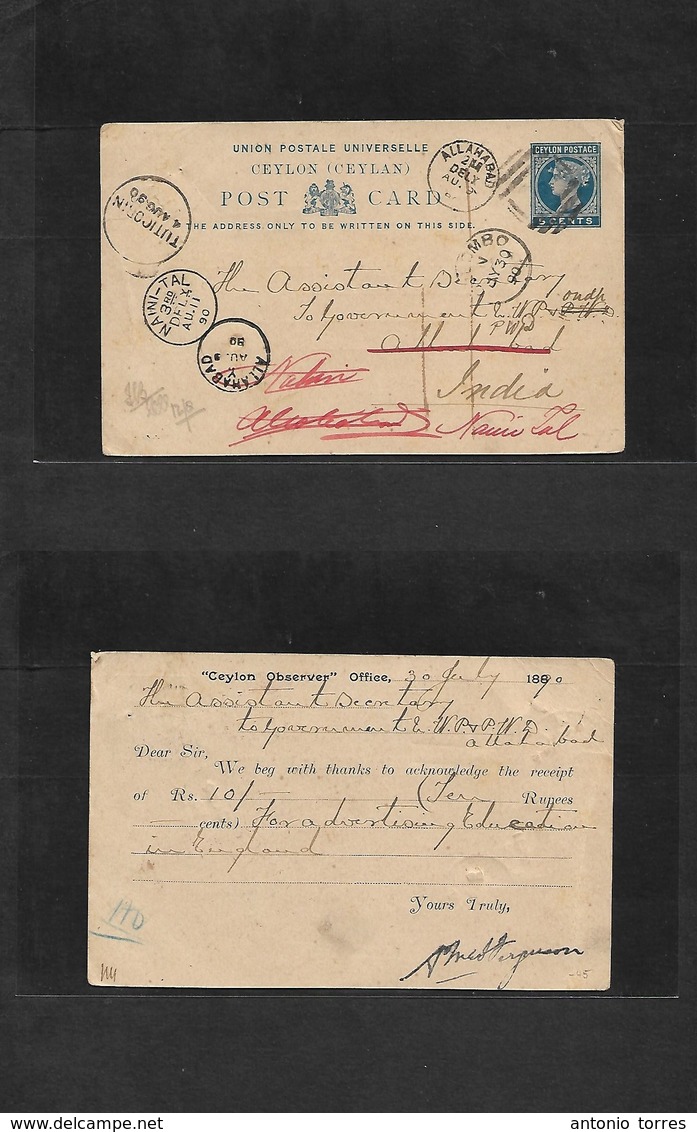 UNION POSTALE UNIVERSELLE
CEYLON (CEYLAN)
POST CARD
THE ADDRESS ONLY TO BE WRITTEN ON THIS SIDE.
CEYLON POSTAGE
5 CENTS
ALLAHABAD
DELY
AU.
TUTICORIN
4 AUG 90
OMBO
V
30
90
NAINI-TAL
3RD
DELY
AU.11
90
ALLAHABAD
AU. 9
90
The Assistant Secretary
To Government &
oudh
PWD
Allahabad
India
Naini Tal
"Ceylon Observer" Office, 30 July 1890
The Assistant Secretary
to Government W.P. & P.W.D.
Allahabad
Dear Sir,
We beg with thanks to acknowledge the receipt
of Rs. 10/- (Ten Rupees
cents) For advertising Education
in England
Yours Truly,
Ferguson
antonio torres